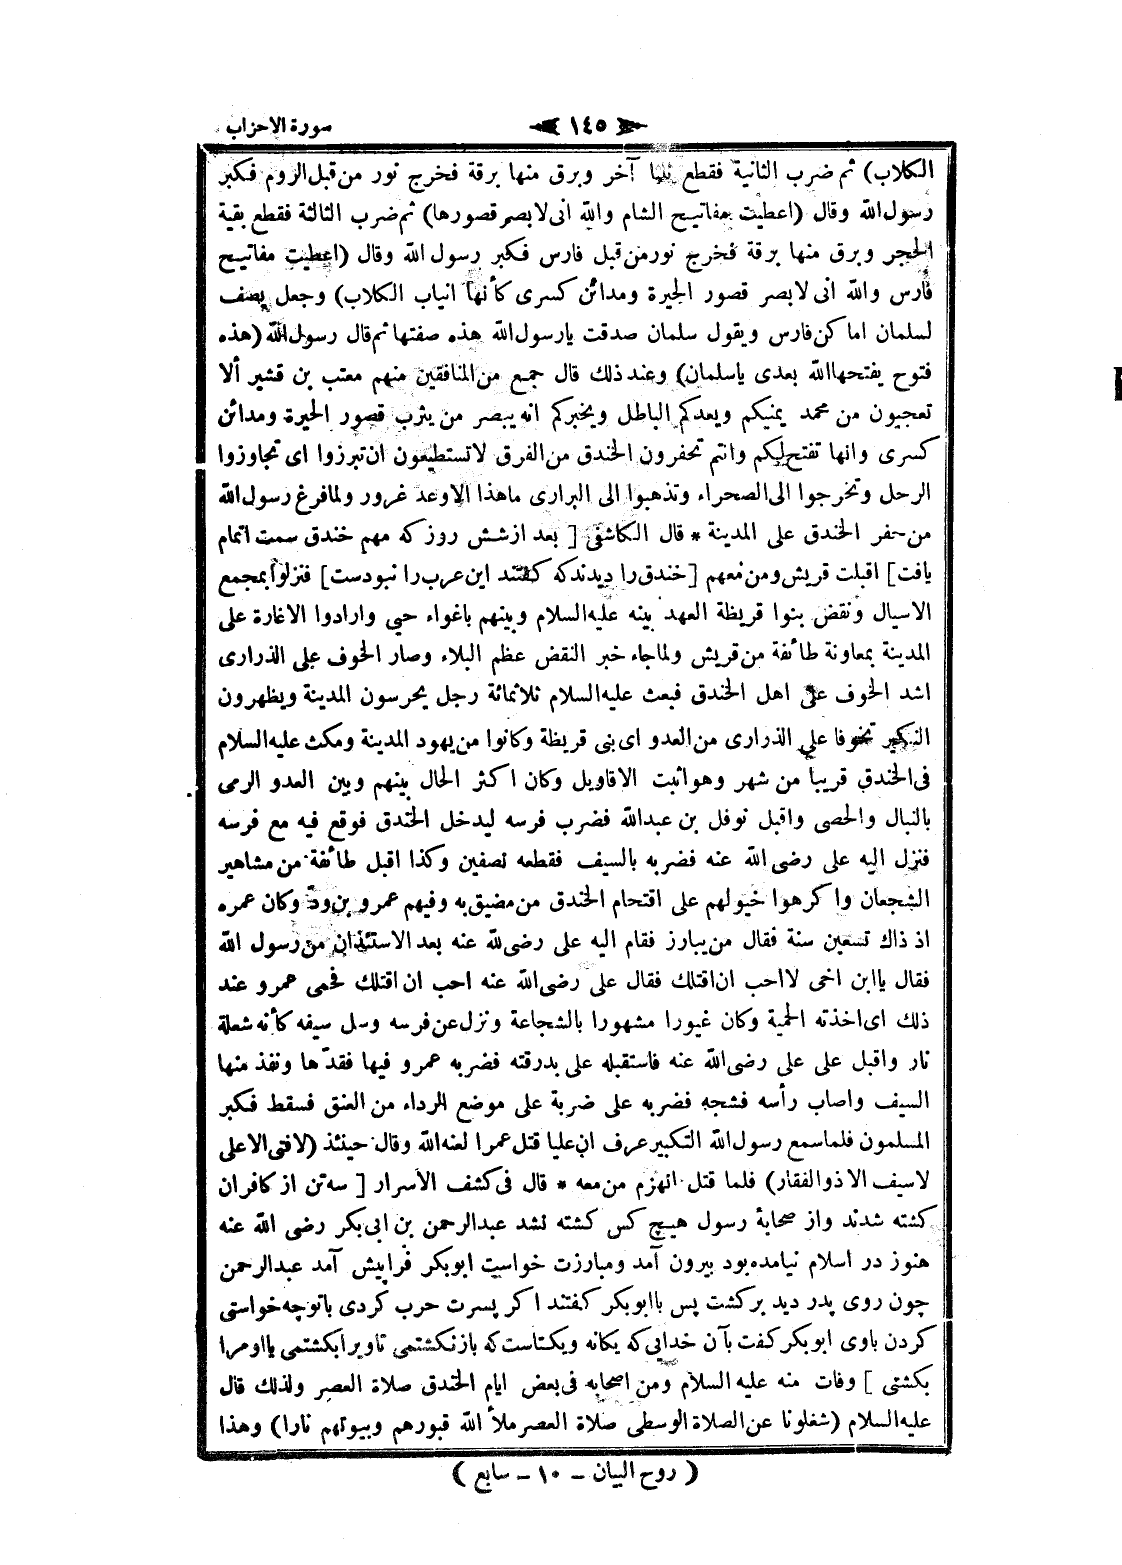 سورة الاحزاب
١٤٥
الكلاب) ثم ضرب الثانية فقطع ثلثا آخر وبرق منها برقة فخرج نور من قبل الروم فكبر
رسول الله وقال (اعطيت مفاتيح الشام والله انى لابصر قصورها) ثم ضرب الثالثة فقطع بقية
الحجر وبرق منها برقة فخرج نور من قبل فارس فكبر رسول الله وقال (اعطيت مفاتيح
فارس والله انى لابصر قصور الحيرة ومدائن كسرى كأنها انياب الكلاب) وجعل يصف
لسلمان اماكن فارس ويقول سلمان صدقت يارسول الله هذه صفتها ثم قال رسول الله (هذه
فتوح يفتحها الله بعدى ياسلمان) وعند ذلك قال جمع من المنافقين منهم معتب بن قشير ألا
تعجبون من محمد يمنيكم ويعدكم الباطل ويخبركم انه يبصر من يثرب قصور الحيرة ومدائن
كسرى وانها تفتح لكم وانتم تحفرون الخندق من الفرق لاتستطيعون ان تبرزوا اى تجاوزوا
الرحل وتخرجوا الى الصحراء وتذهبوا الى البرارى ماهذا الاوعد غرور ولما فرغ رسول الله
من حفر الخندق على المدينة * قال الكاشفى [ بعد ازشش روز كه مهم خندق سمت اتمام
يافت ] اقبلت قريش ومن معهم [ خندق را ديدند كه كفتند اين عرب را نبودست ] فنزلوا بمجمع
الاسيال ونقض بنوا قريظة العهد بينه عليه السلام وبينهم باغواء حيى وارادوا الاغارة على
المدينة بمعاونة طائفة من قريش ولما جاء خبر النقض عظم البلاء وصار الخوف على الذرارى
اشد الخوف على اهل الخندق فبعث عليه السلام ثلاثمائة رجل يحرسون المدينة ويظهرون
التكبير تخوفا على الذرارى من العدو اى بنى قريظة وكانوا من يهود المدينة ومكث عليه السلام
فى الخندق قريبا من شهر وهو اثبت الاقاويل وكان اكثر الحال بينهم وبين العدو الرمى
بالنبال والحصى واقبل نوفل بن عبدالله فضرب فرسه ليدخل الخندق فوقع فيه مع فرسه
فنزل اليه على رضى الله عنه فضربه بالسيف فقطعه نصفين وكذا اقبل طائفة من مشاهير
الشجعان واكرهوا خيولهم على اقتحام الخندق من مضيق به وفيهم عمرو بن ودّ وكان عمره
اذ ذاك تسعين سنة فقال من يبارز فقام اليه على رضى لله عنه بعد الاستئذان من رسول الله
فقال يا ابن اخى لااحب ان اقتلك فقال على رضى الله عنه احب ان اقتلك فحمى عمرو عند
ذلك اى اخذته الحمية وكان غيورا مشهورا بالشجاعة ونزل عن فرسه وسل سيفه كأنه شعلة
نار واقبل على على رضى الله عنه فاستقبله على بدرقته فضربه عمرو فيها فقدّها ونفذ منها
السيف واصاب رأسه فشجه فضربه على ضربة على موضع الرداء من العنق فسقط فكبر
المسلمون فلما سمع رسول الله التكبير عرف ان عليا قتل عمرا لعنه الله وقال حينئذ (لافتى الاعلى
لاسيف الا ذوالفقار) فلما قتل انهزم من معه * قال فى كشف الاسرار [ سه تن از كافران
كشته شدند واز صحابۀ رسول هيچ كس كشته نشد عبدالرحمن بن ابى بكر رضى الله عنه
هنوز در اسلام نيامده بود بيرون آمد ومبارزت خواست ابوبكر فراپيش آمد عبدالرحمن
چون روى پدر ديد بركشت پس با ابوبكر كفتند اكر پسرت حرب كردى باتوچه خواستى
كردن باوى ابوبكر كفت بآن خدايى كه يكانه ويكتاست كه بازنكشتمى تاويرا بكشتمى يا اومرا
بكشتى ] وفات منه عليه السلام ومن اصحابه فى بعض ايام الخندق صلاة العصر ولذلك قال
عليه السلام (شغلونا عن الصلاة الوسطى صلاة العصر ملأ الله قبورهم وبيوتهم نارا) وهذا
( روح البيان – ١٠ – سابع )